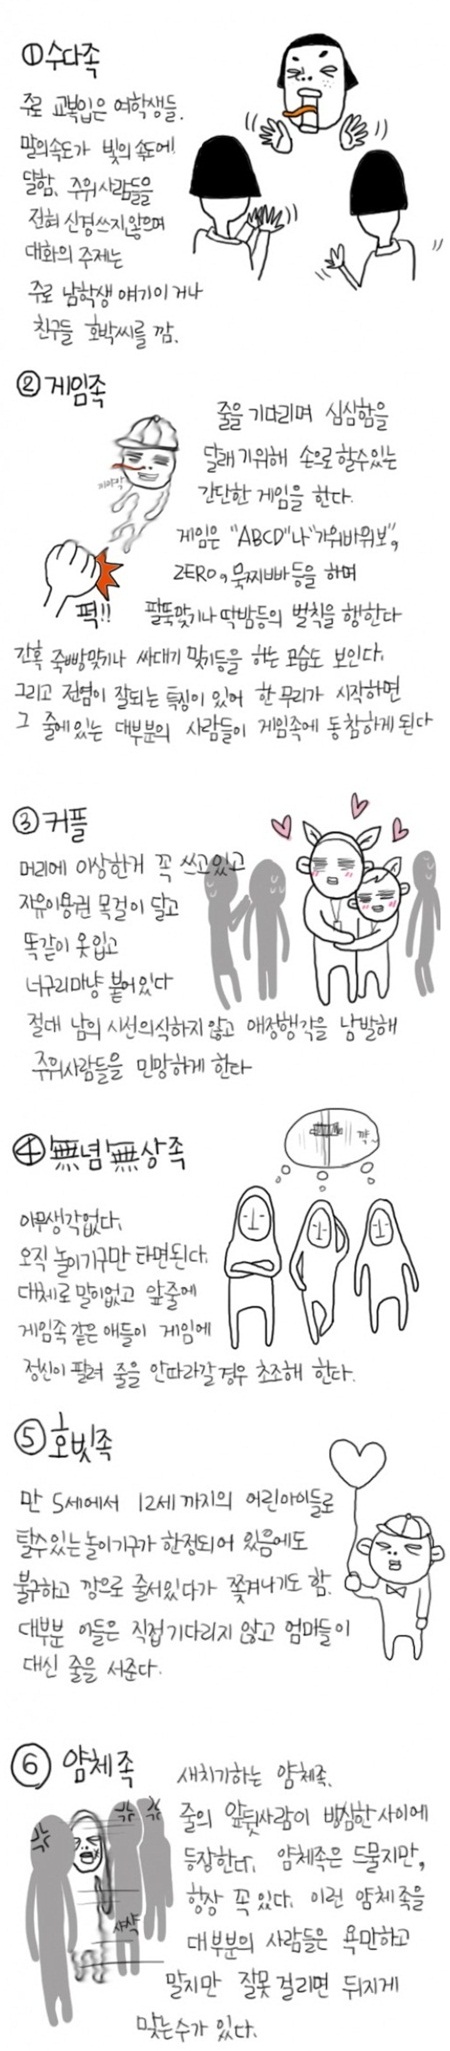 ①수다족
주로 교복입은 여학생들.
말의속도가 빛의속도에!
달함. 주위사람들을
전혀 신경쓰지않으며
대화의 주제는
주로 남학생 얘기이거나
친구들 호박씨를 깜.
②게임족
줄을 기다리며 심심함을
달래기위해 손으로 할수있는
간단한 게임을 한다.
게임은 "ABCD"나 "가위바위보",
ZERO, 묵찌빠등을 하며
팔뚝맞기나 딱밤등의 벌칙을 행한다
퍽!!
간혹 죽빵맞기나 싸대기 맞기등을 하는 모습도 보인다.
그리고 전염이 잘되는 특징이 있어 한 무리가 시작하면
그 줄에있는 대부분의 사람들이 게임족에 동참하게 된다
③커플
머리에 이상한거 꼭 쓰고있고
자유이용권 목걸이 달고
똑같이 옷입고
너구리마냥 붙어있다
절대 남의 시선의식하지 않고 애정행각을 남발해
주위사람들을 민망하게 한다
④無념無상족
꺅~
아무생각없다.
오직 놀이기구만 타면된다.
대체로 말이없고 앞줄에
게임족 같은 애들이 게임에
정신이 팔려 줄을 안따라갈경우 초조해 한다.
⑤호빗족
만 5세에서 12세까지의 어린아이들로
탈수있는 놀이기구가 한정되어 있음에도
불구하고 깡으로 줄서있다가 쫓겨나기도 함.
대부분 아들은 직접 기다리지 않고 엄마들이
대신 줄을 서준다.
⑥얌체족
새치기하는 얌체족.
줄의 앞뒷사람이 방심한사이에
등장한다. 얌체족은 드물지만,
항상 꼭 있다. 이런 얌체족을
샤샥
대부분의 사람들은 욕만하고
말지만 잘못 걸리면 뒤지게
맞는수가 있다.